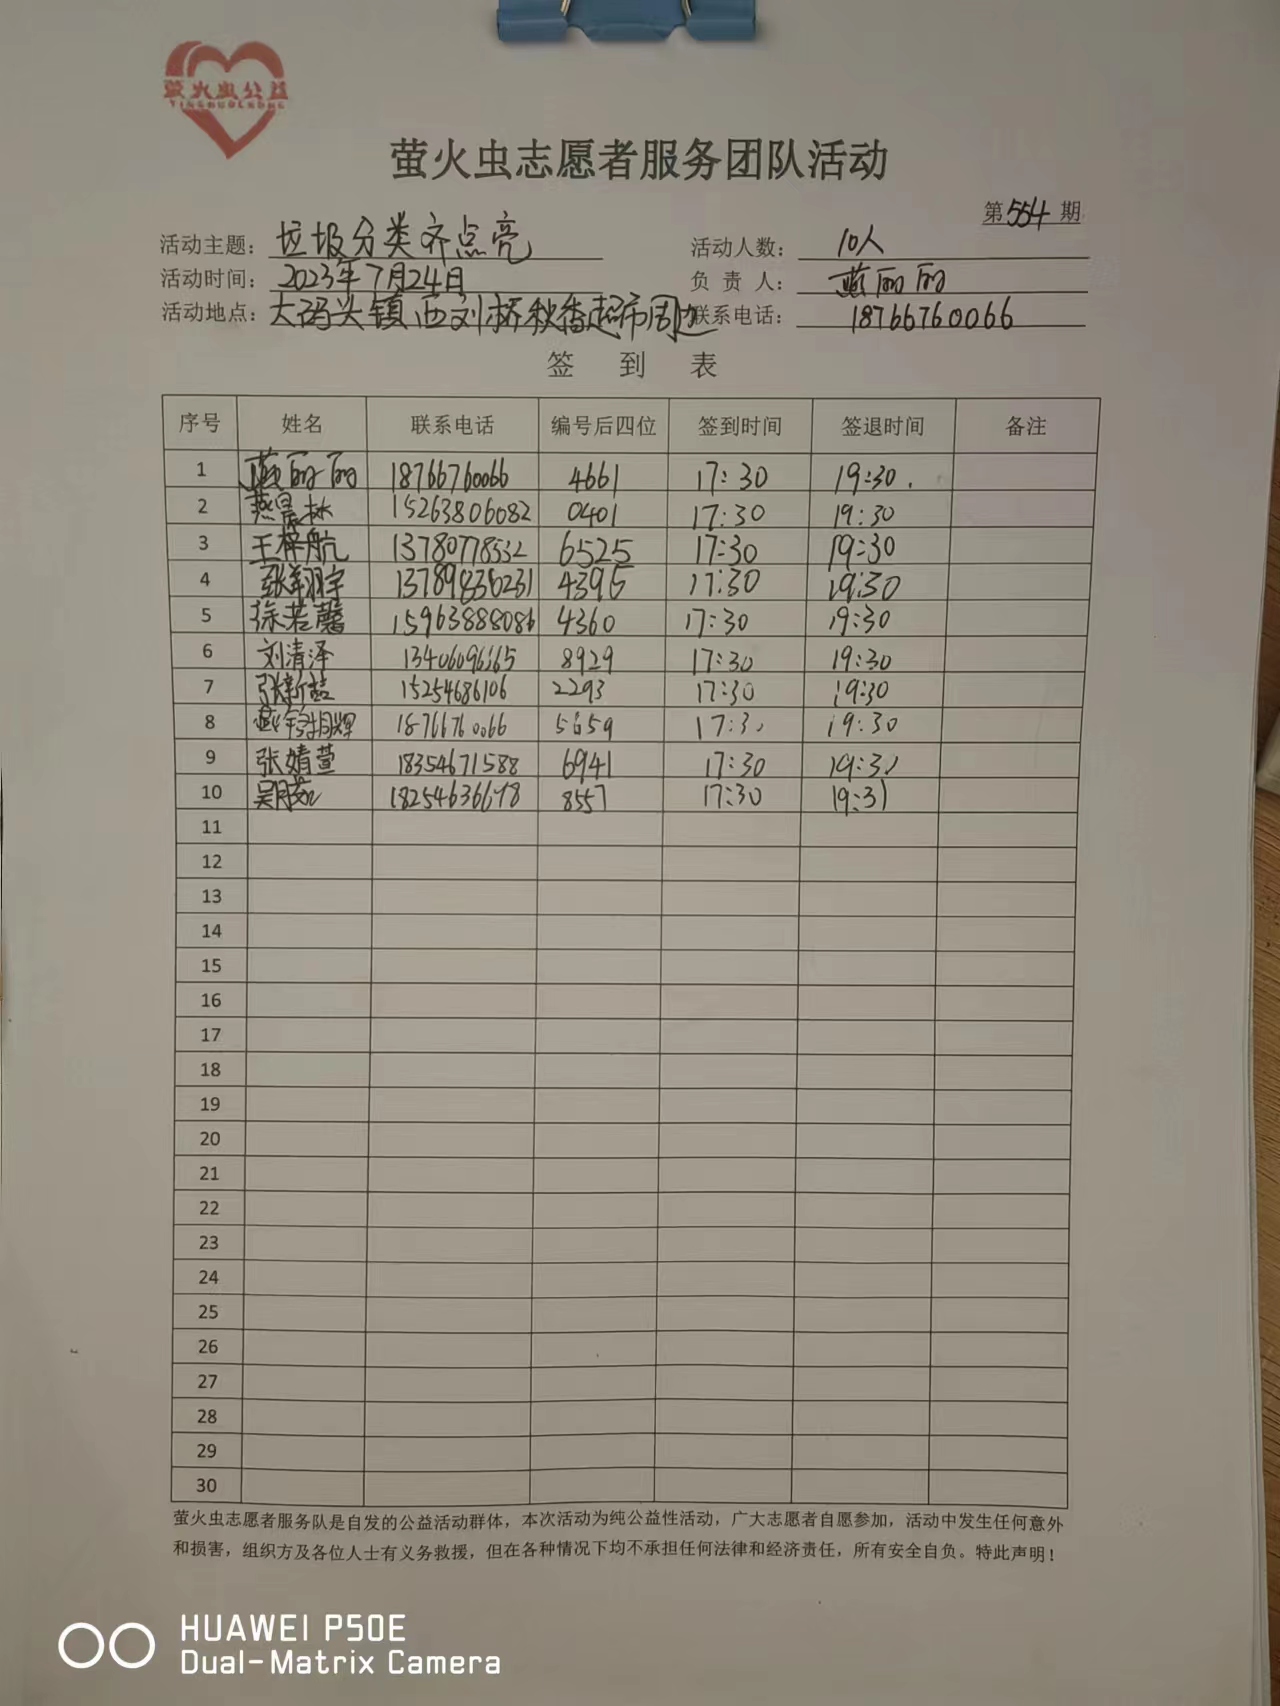 萤火虫公益
YINGHUOCHONG
萤火虫志愿者服务团队活动
第554期
活动主题：垃圾分类齐点亮 活动人数：10人
活动时间：2023年7月24日 负责人：燕丽丽
活动地点：大码头镇西刘桥秋香超市周边 联系电话：18766760066
签到表
序号 姓名 联系电话 编号后四位 签到时间 签退时间 备注
1 燕丽丽 18766760066 4661 17:30 19:30
2 燕晨林 15263806082 0401 17:30 19:30
3 王梓航 13780778532 6525 17:30 19:30
4 张翔宇 13789836231 4395 17:30 19:30
5 徐若馨 15963888086 4360 17:30 19:30
6 刘清泽 8929 17:30 19:30
7 15254686106 2293 17:30 19:30
8 18766760066 5659 17:30 19:30
9 张婧萱 18354671588 6941 17:30 19:30
10 8557 17:30 19:31
11
12
13
14
15
16
17
18
19
20
21
22
23
24
25
26
27
28
29
30
萤火虫志愿者服务队是自发的公益活动群体，本次活动为纯公益性活动，广大志愿者自愿参加，活动中发生任何意外
和损害，组织方及各位人士有义务救援，但在各种情况下均不承担任何法律和经济责任，所有安全自负。特此声明！
HUAWEI P50E
Dual-Matrix Camera